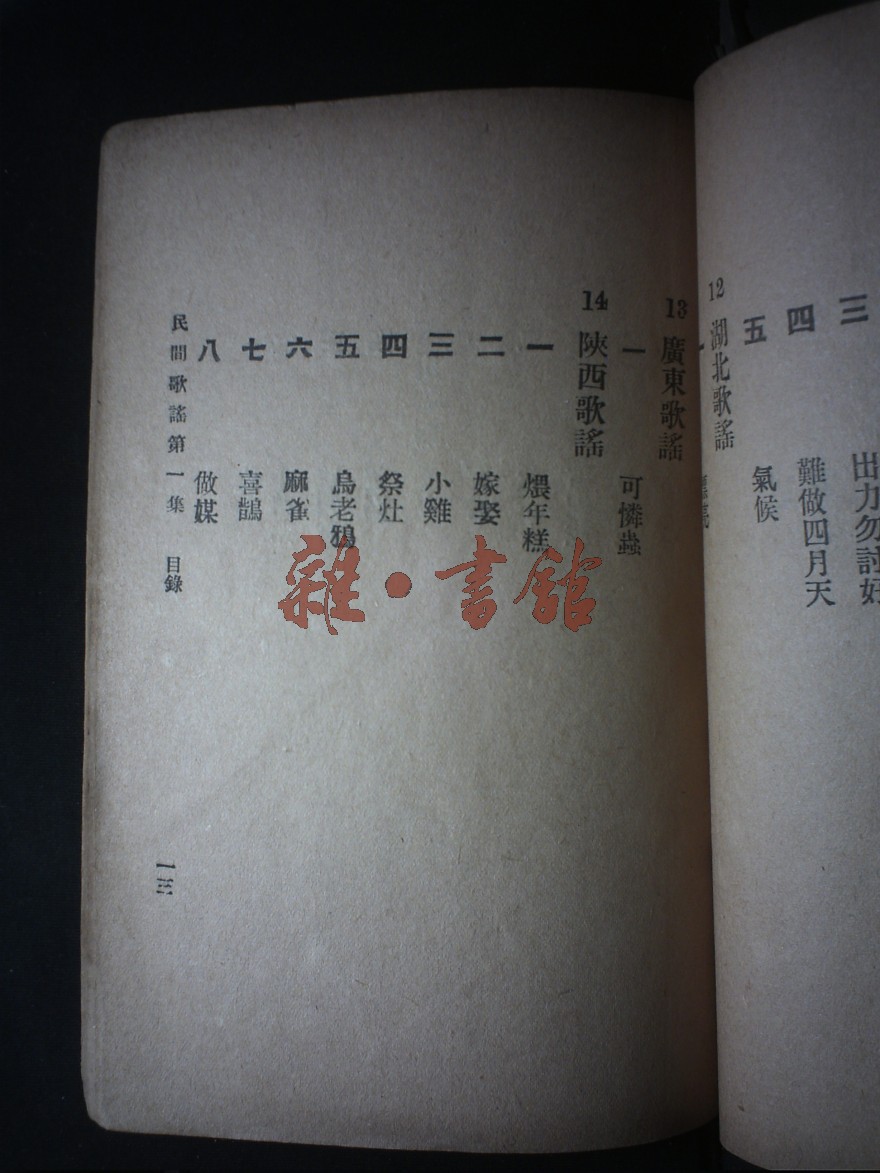 三
出力勿討好
四
難做四月天
五
氣候
12 湖北歌謠
一
13 廣東歌謠
一 可憐蟲
14 陝西歌謠
一 煨年糕
二 嫁娶
三 小雞
四 祭灶
五 烏老鴉
六 麻雀
七 喜鵲
八 做媒
民間歌謠第一集 目錄
一三
雜·書館